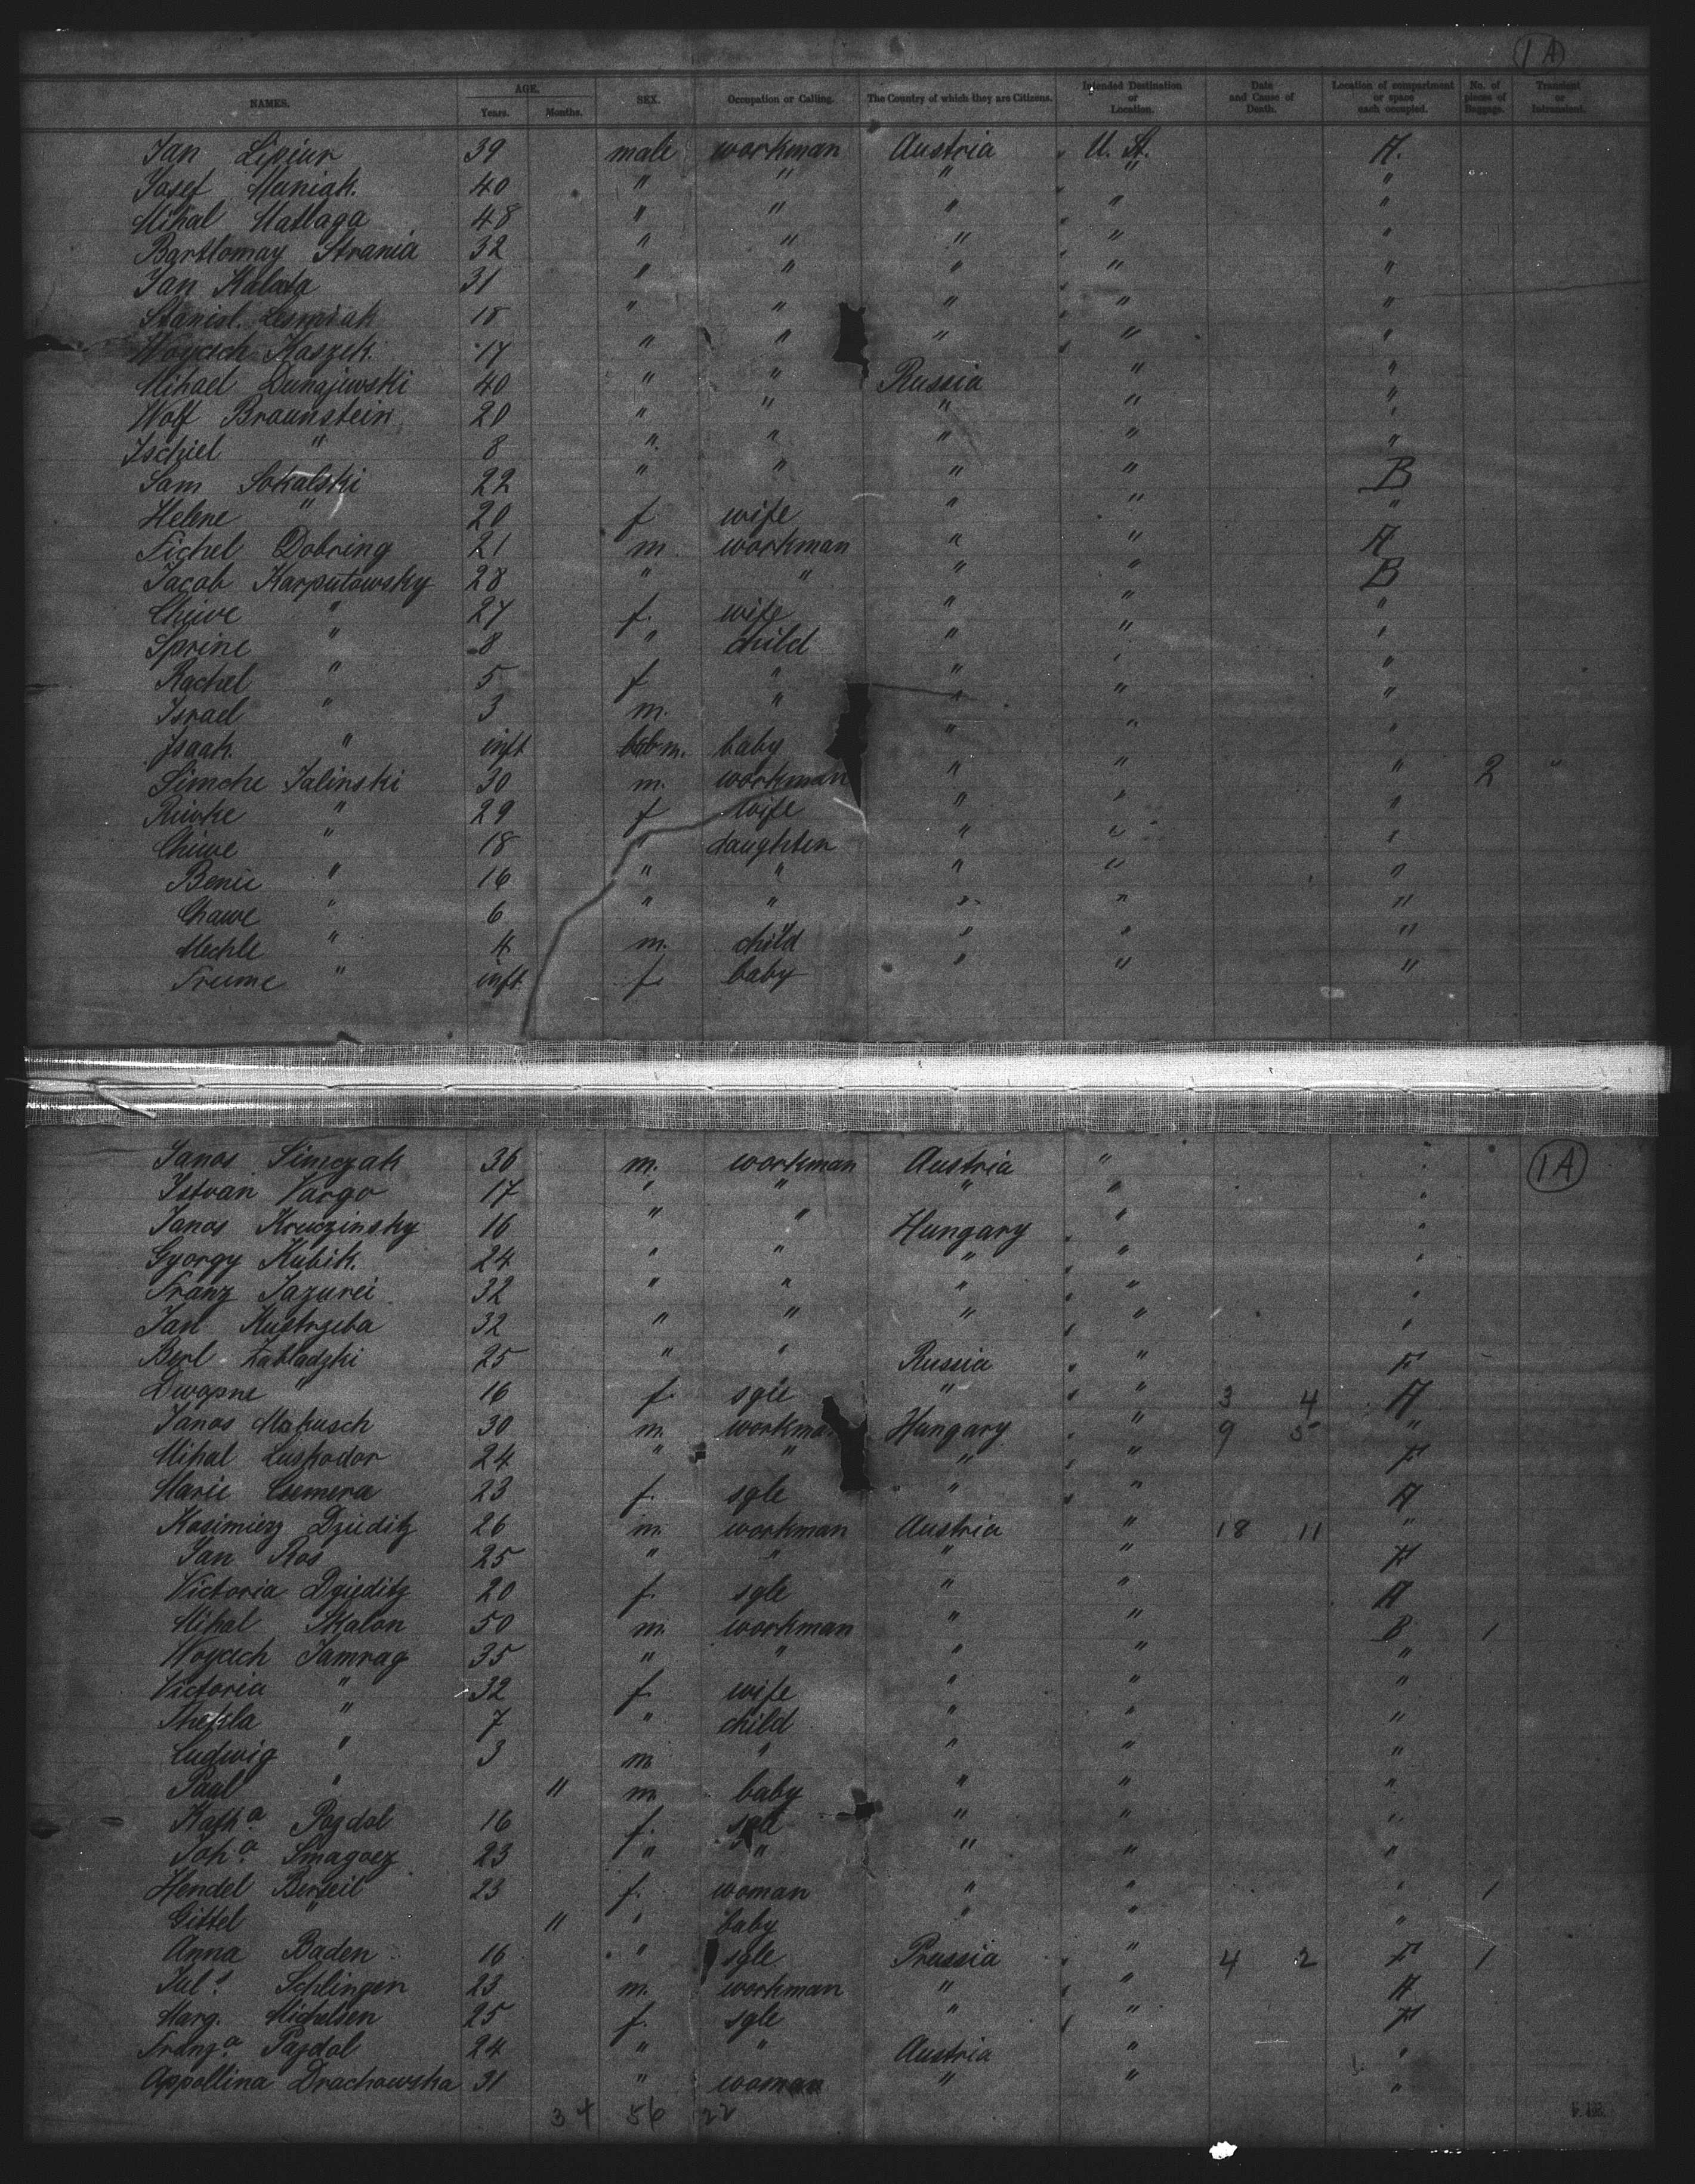 1A
NAMES. AGE. Years. Months. SEX. Occupation or Calling. The Country of which they are Citizens. Intended Destination or Location. Date and Cause of Death. Location of compartment or space each occupied. No. of pieces of Baggage. Transient or Intransient.
Jan Lipiur 39 male workman Austria U. St. A.
Josef Muniak. 40 " " " " "
Mihal Matlaga 48 " " " " "
Bartlomay Strania 32 " " " " "
Jan Kaloda 31 " " " " "
Stanisl. Lesniak 18 " " " " "
Woycich Kaszek. 17 " " " " "
Mihael Dunajewski 40 " " Russia " "
Wolf Braunstein 20 " " " " "
Ischiel " 8 " " " " "
Sam Sokalski 22 " " " " B
Helene " 20 f wife " " "
Fichel Dobring 21 m workman " " A
Jacob Karputowsky 28 " " " " B
Chiwe " 27 f. wife " " "
Sprine " 8 " child " " "
Rachel " 5 f " " " "
Israel " 3 m. " " " "
Isaak. " inft m. baby " " "
Simche Jalinski 30 m. workman " " " 2 "
Riwke " 29 f wife " " "
Chiwe " 18 " daughter " " "
Benie " 16 " " " " "
Chawe " 6 " " " " "
Mechle " 4 m. child " " "
Frume " inft. f. baby " " "
1A
Janos Simczak 36 m. workman Austria " "
Istvan Vargo 17 " " " " "
Janos Kruczinsky 16 " " Hungary " "
Gyorgy Kubik. 24 " " " " "
Franz Jazurei 32 " " " " "
Jan Kustrzeba 32 " " " " "
Berl Zabladzki 25 " " Russia " F
Dwopne " 16 f. sgle " " 3 4 A
Janos Makusch 30 m. workman Hungary " 9 5 "
Mihal Luskodor 24 " " " " F
Marie Csemera 23 f. sgle " " A
Kasimierz Dzieditz 26 m. workman Austria " 18 11 "
Jan Ros 25 " " " " F
Victoria Dzieditz 20 f. sgle " " A
Mihal Skalon 50 m. workman " " B 1
Woycich Jamrag 35 " " " " "
Victoria " 32 f. wife " " "
Thekla " 7 " child " " "
Ludwig " 3 m " " " "
Paul " 11 m baby " " "
Kath.a Pazdol 16 f. sgle " " "
Joh.a Smagoez 23 " " " " "
Hendel Berseil 23 f. woman " " " 1
Gittel " 11 " baby " " "
Anna Baden 16 " sgle Prussia " 4 2 F 1
Jul.s Schlingen 23 m. workman " " A
Marg. Michelsen 25 f. sgle " " F
Franz.a Pazdol 24 " " Austria " "
Appollina Drachowska 31 " woman " " "
34 56 22